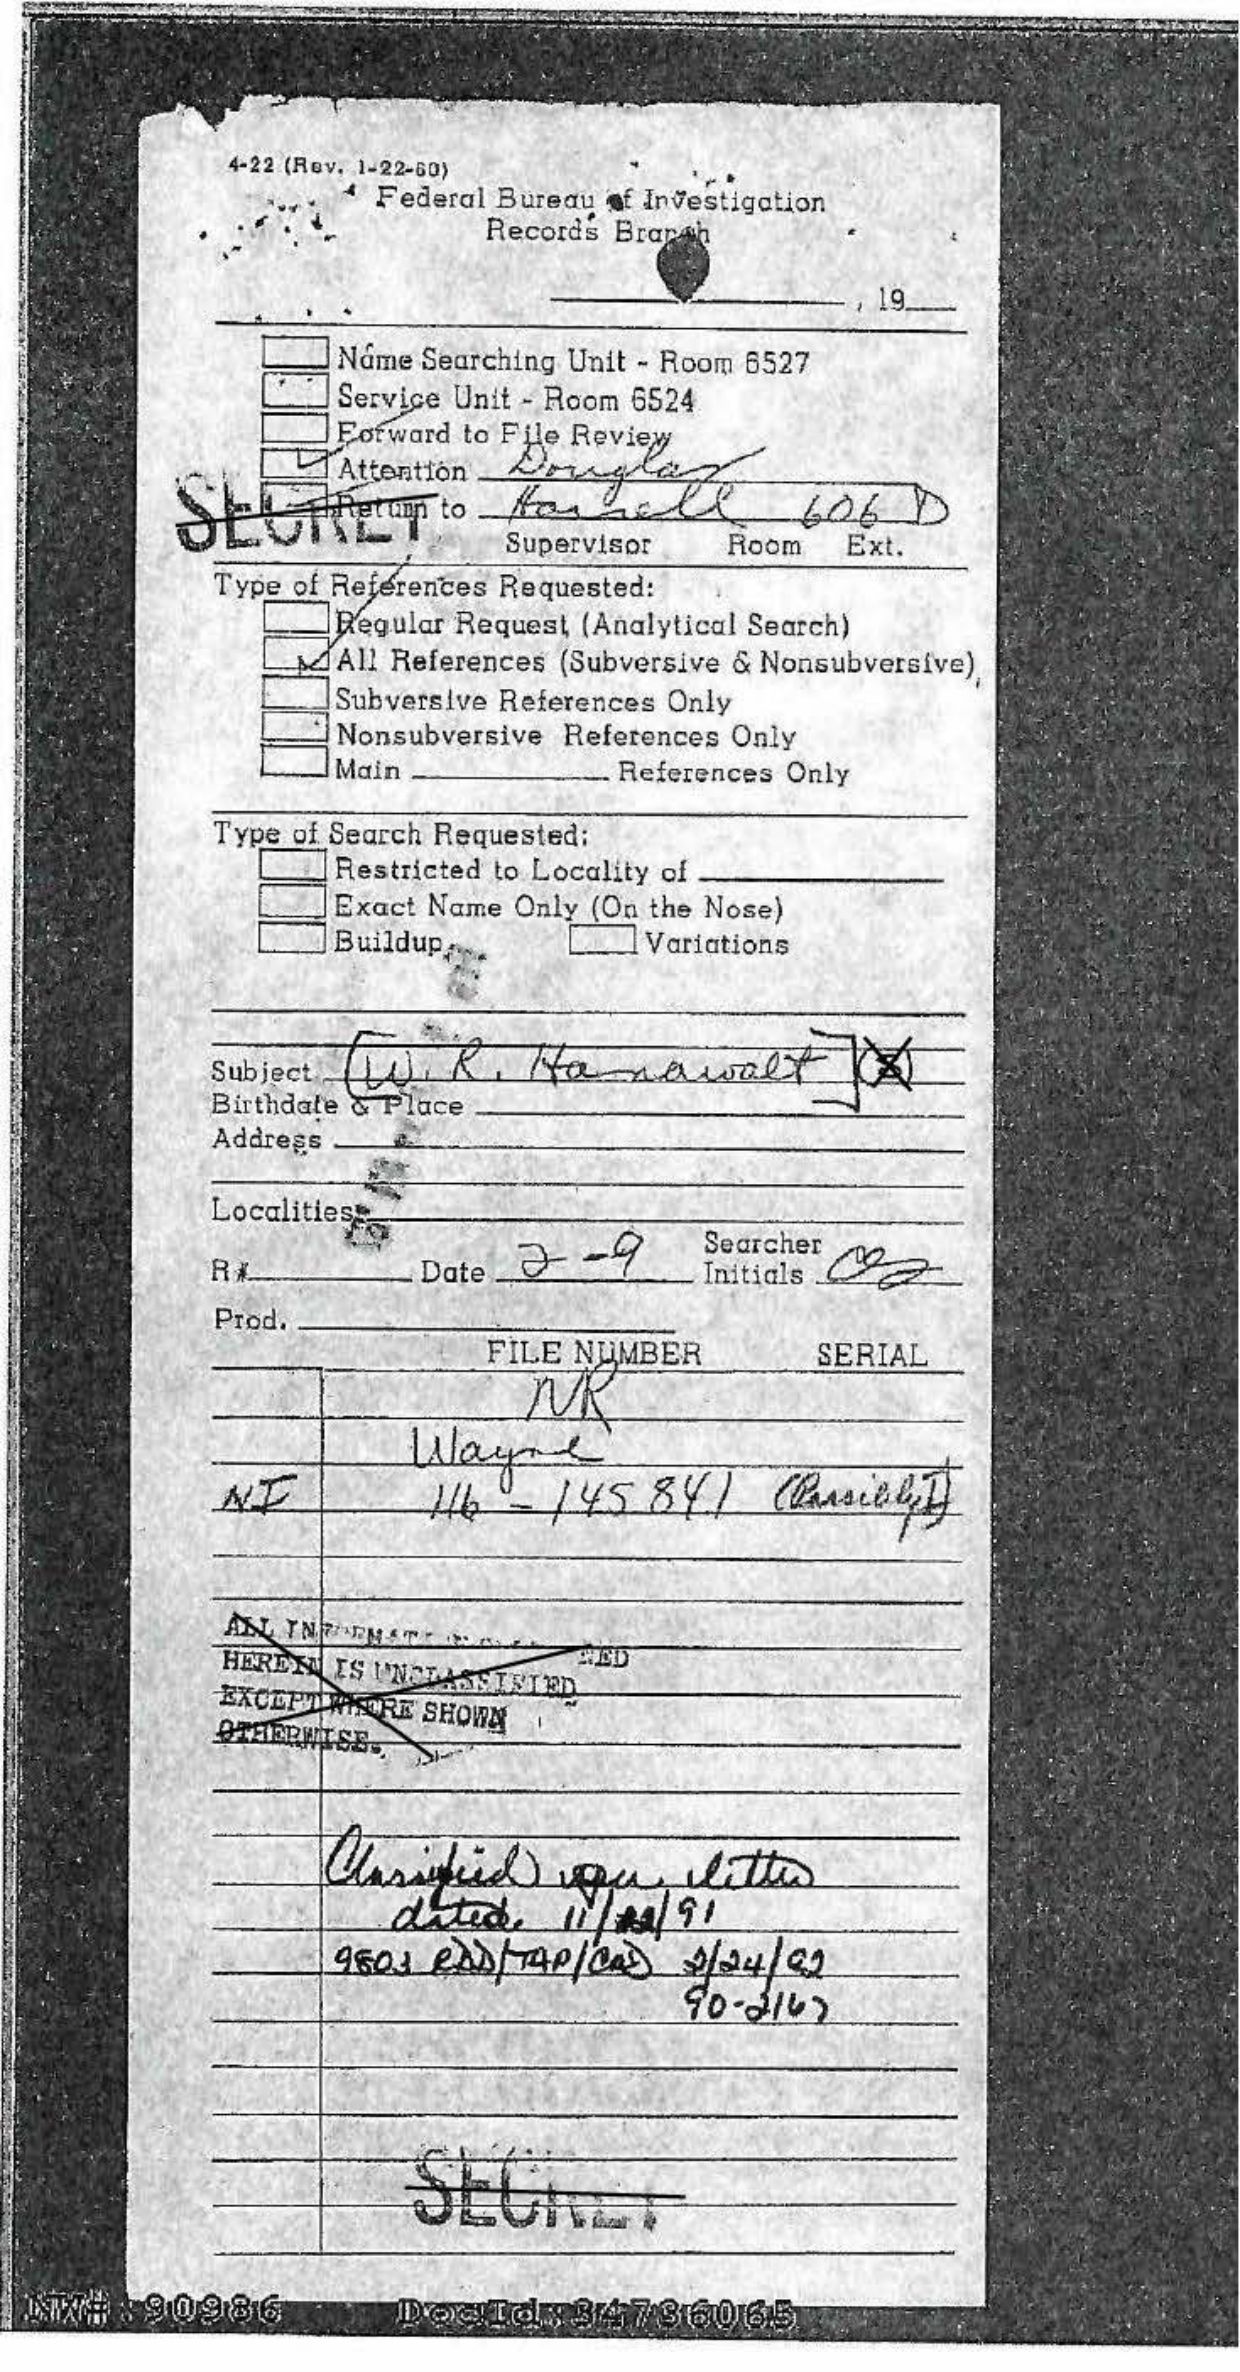 4-22 (Rev. 1-22-60)
Federal Bureau of Investigation
Records Branch
, 19
Name Searching Unit - Room 6527
Service Unit - Room 6524
Forward to File Review
Attention Douglas
SECRET
Return to 606 D
Supervisor Room Ext.
Type of References Requested:
Regular Request (Analytical Search)
All References (Subversive & Nonsubversive)
Subversive References Only
Nonsubversive References Only
Main References Only
Type of Search Requested:
Restricted to Locality of
Exact Name Only (On the Nose)
Buildup Variations
Subject [W. R. Hanawalt]
Birthdate & Place
Address
Localities
R# Date 2-9 Searcher Initials
Prod.
FILE NUMBER SERIAL
NR
Wayne
NI 116-145841 (Possibly I)
ALL INFORMATION CONTAINED
HEREIN IS UNCLASSIFIED
EXCEPT WHERE SHOWN
OTHERWISE.
Classified per letter
dated 11/ /91
9803 RDD/TAP/ 2/24/92
90-2167
SECRET
NW#:90986 DocId:34736065